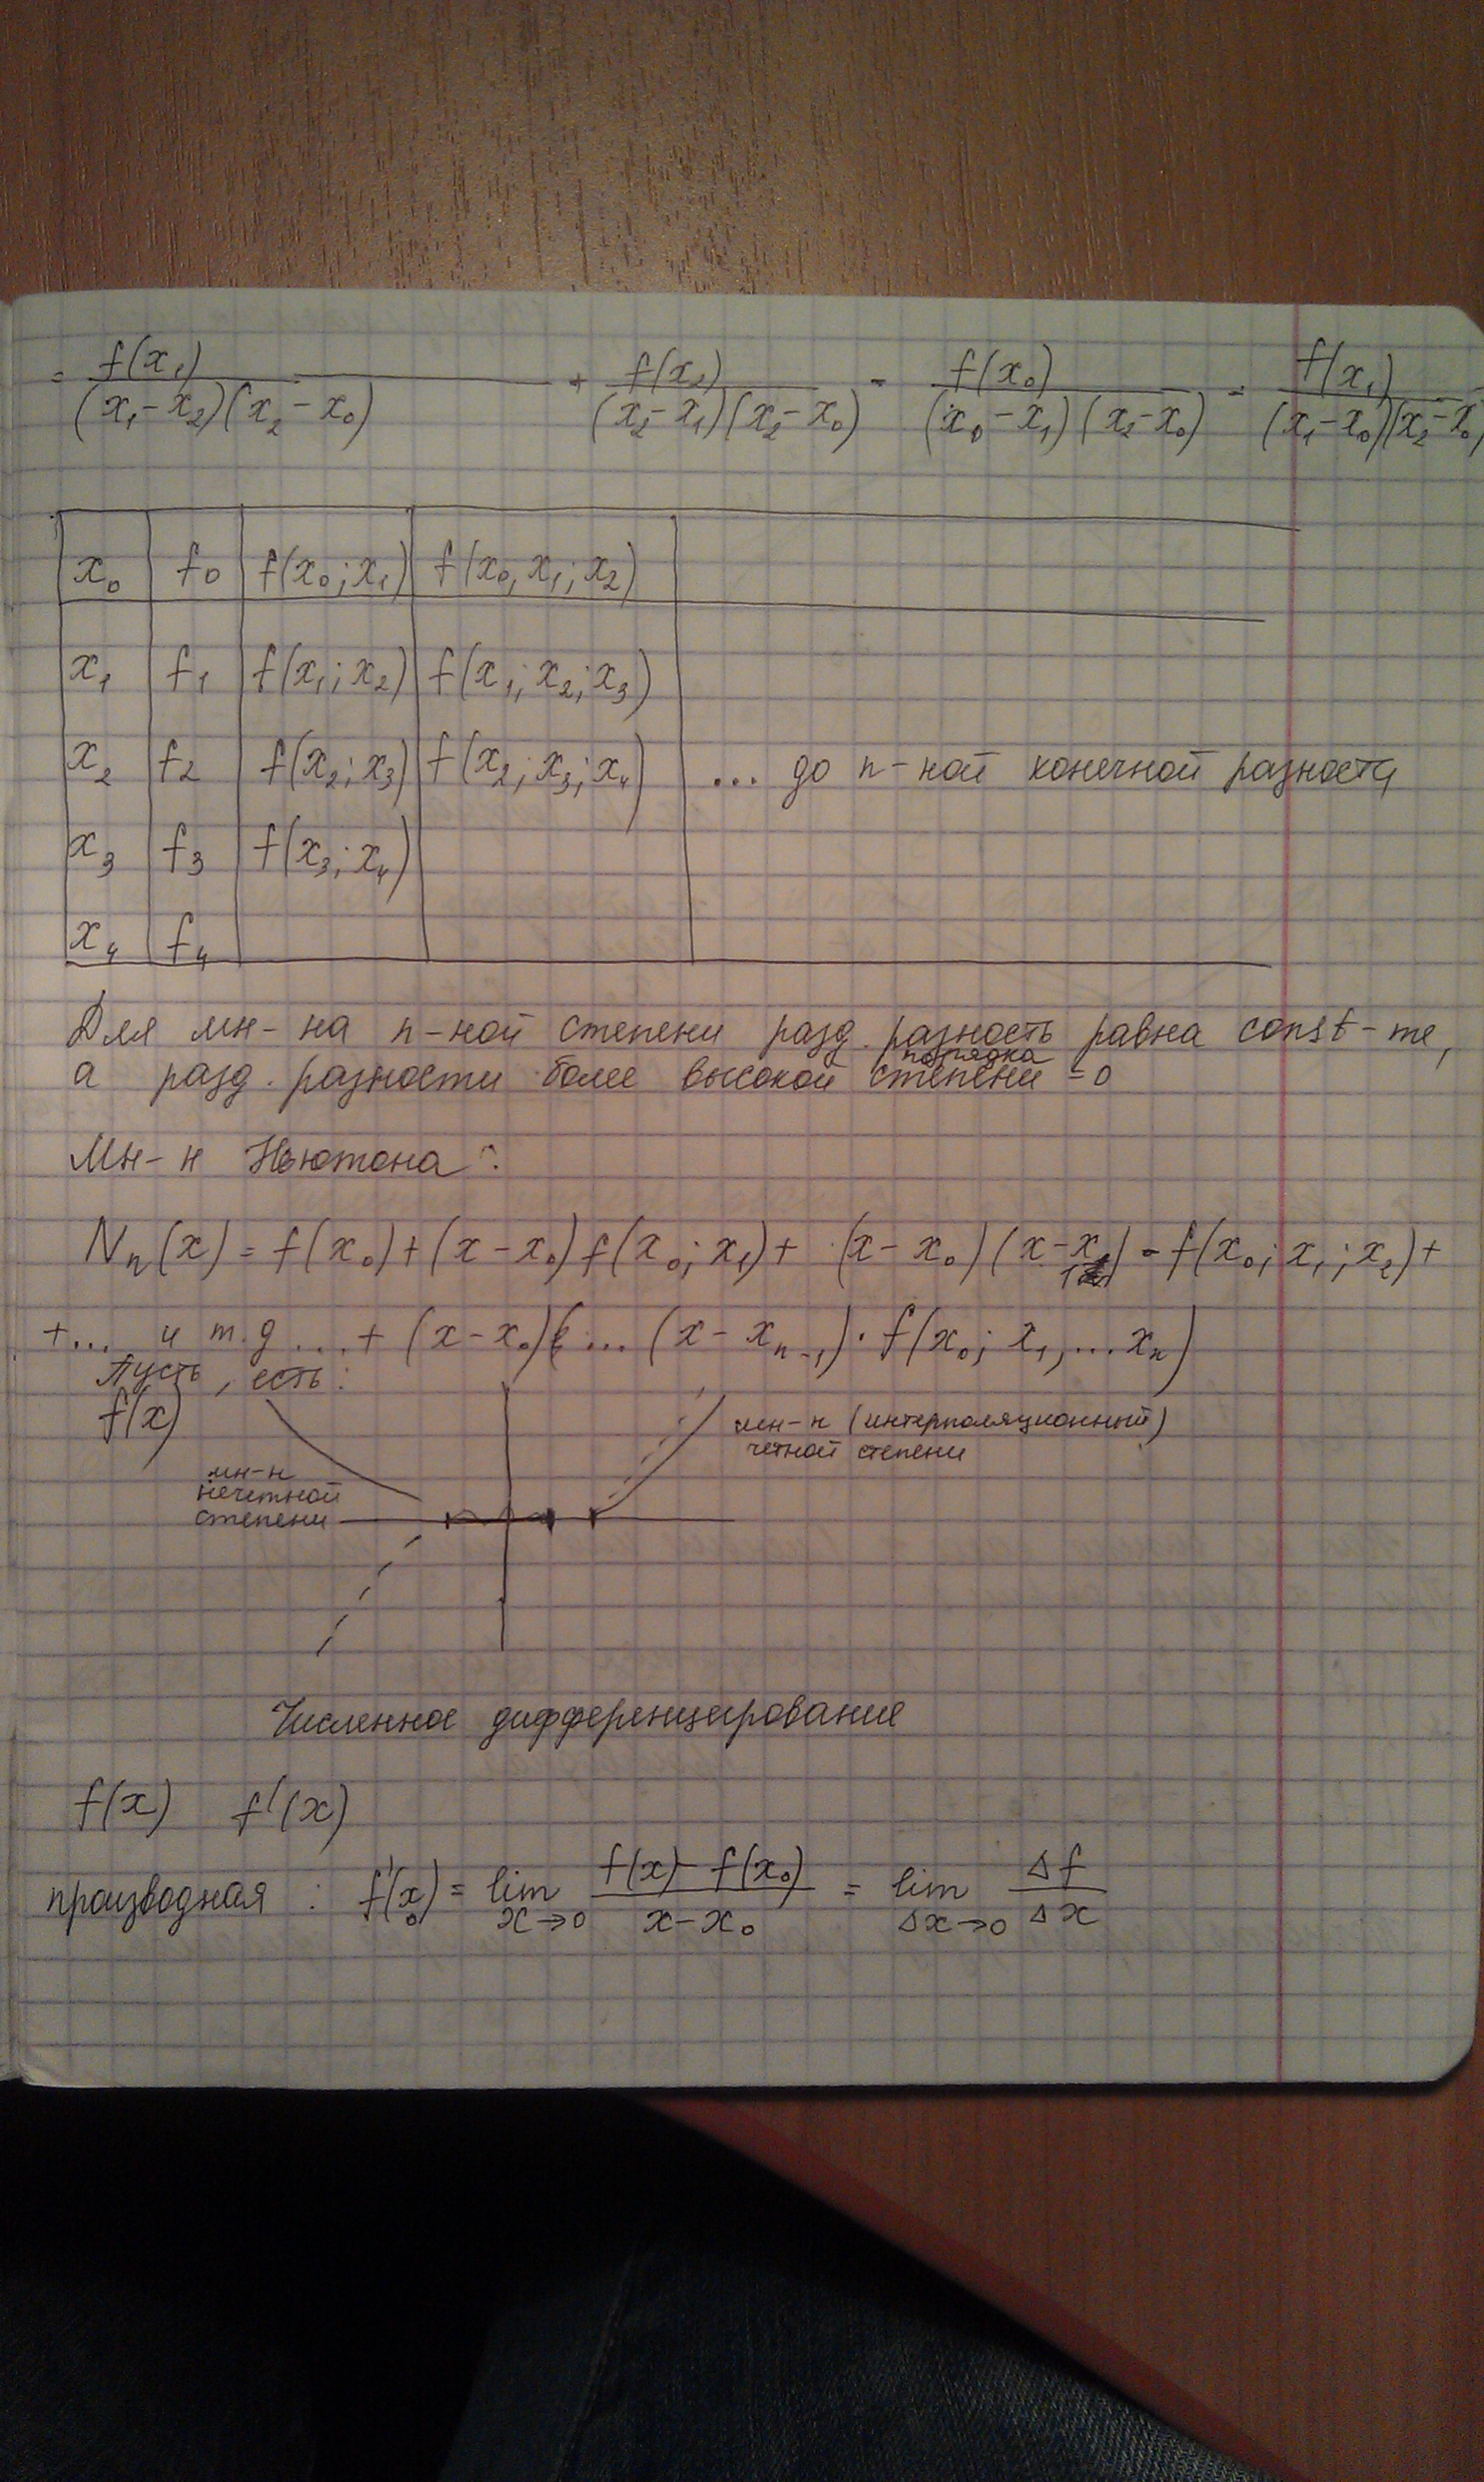 = f(x₁)/((x₁-x₂)(x₂-x₀)) + f(x₂)/((x₂-x₁)(x₂-x₀)) - f(x₀)/((x₀-x₁)(x₂-x₀)) - f(x₁)/((x₁-x₀)(x₂-x₀)
x₀ f₀ f(x₀;x₁) f(x₀,x₁;x₂)
x₁ f₁ f(x₁;x₂) f(x₁;x₂;x₃)
x₂ f₂ f(x₂;x₃) f(x₂;x₃;x₄) ... до n-ной конечной разности
x₃ f₃ f(x₃;x₄)
x₄ f₄
Для мн-на n-ной степени разд. разность равна const-те,
а разд. разности более высокой степени порядка = 0
Мн-н Ньютона:
Nₙ(x) = f(x₀)+(x-x₀)f(x₀;x₁)+ (x-x₀)(x-x₁)·f(x₀;x₁;x₂)+
+... и т.д ...+ (x-x₀)(...(x-xₙ₋₁)·f(x₀;x₁,...xₙ)
Пусть, есть:
f(x)
мн-н (интерполяционный)
четной степени
мн-н
нечетной
степени
Численное дифференцирование
f(x) f'(x)
производная : f'(x₀) = lim x→0 (f(x)-f(x₀))/(x-x₀) = lim Δx→0 Δf/Δx